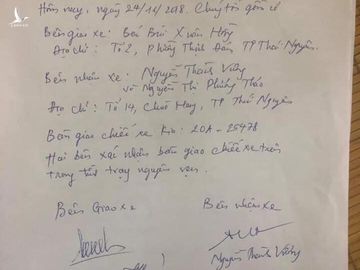 Hôm nay, ngày 24/11/2018. Chúng tôi gồm có
Bên giao xe: Bùi Xuân Hồng
Địa chỉ: Tổ 2, phường Thịnh Đán, TP Thái Nguyên.
Bên nhận xe: Nguyễn Thành Vường
và Nguyễn Thị Phương Thảo
Địa chỉ: Tổ 14, Chùa Hang, TP Thái Nguyên
Bàn giao chiếc xe Kia: 20A-25478
Hai bên xác nhận bàn giao chiếc xe trên
trong tình trạng nguyên vẹn.
Bên Giao xe
Bên nhận xe
Nguyễn Thành Vường